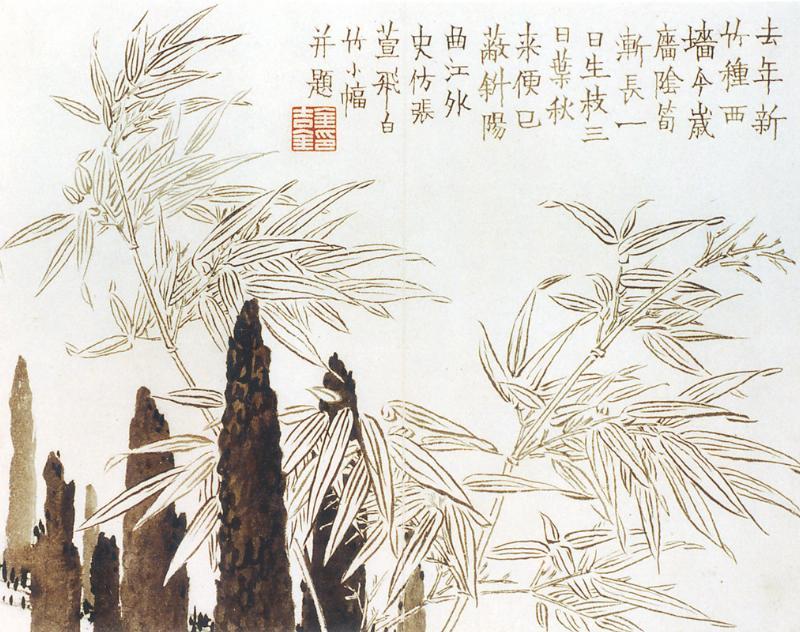 去年新
竹種西
墻今歲
廧陰筍
漸長一
日生枝三
日葉秋
來便已
蔽斜陽
曲江外
史仿張
萱飛白
竹小幅
并題
金吉金印